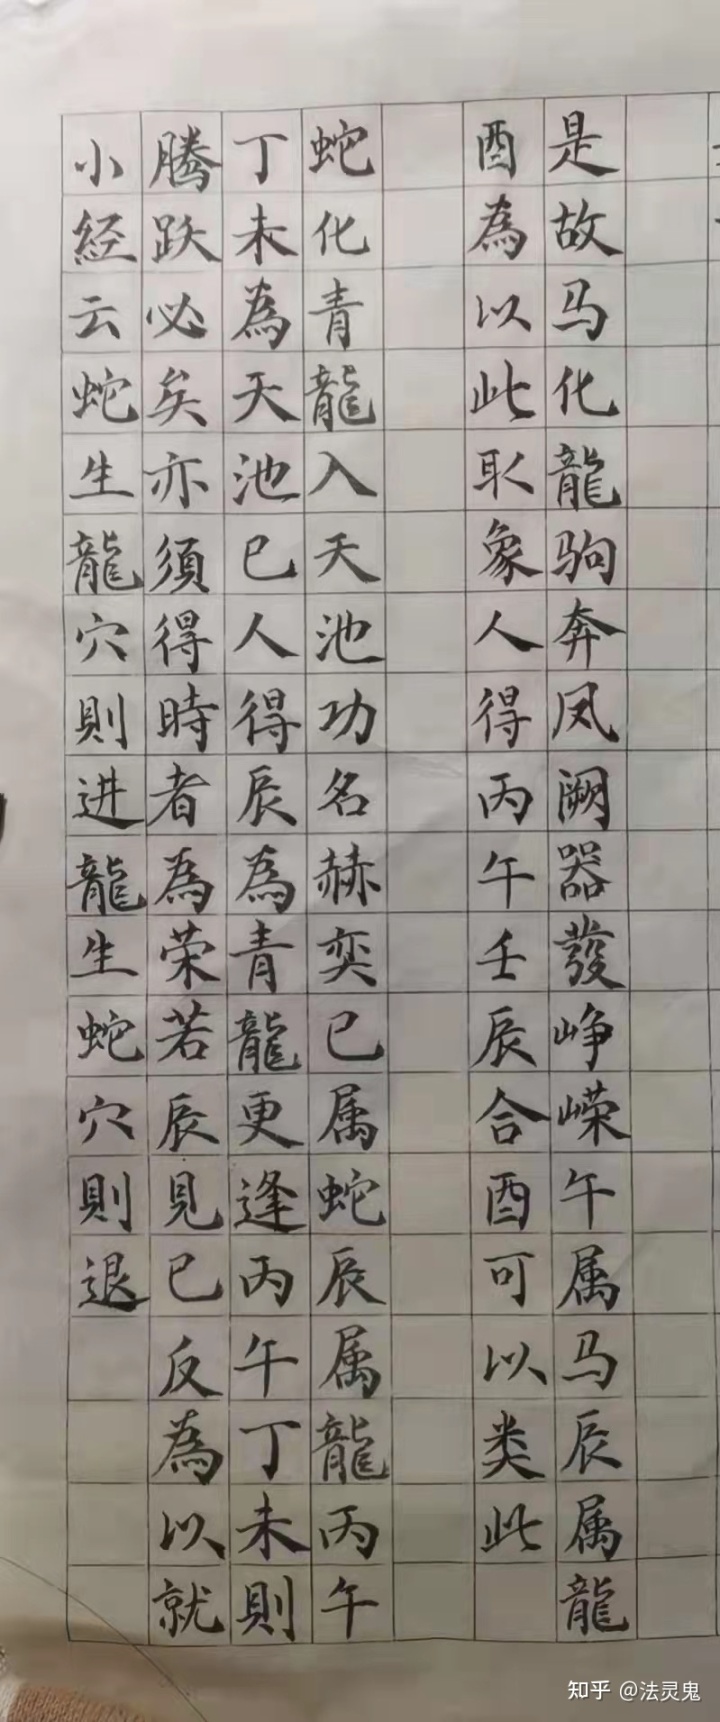 是故马化龍驹奔凤阙器發峥嵘午属马辰属龍
酉為以此取象人得丙午壬辰合酉可以类此
蛇化青龍入天池功名赫奕巳属蛇辰属龍丙午
丁未為天池巳人得辰為青龍更逢丙午丁未則
腾跃必矣亦須得時者為荣若辰見巳反為以就
小経云蛇生龍穴則进龍生蛇穴則退
知乎 @法灵鬼